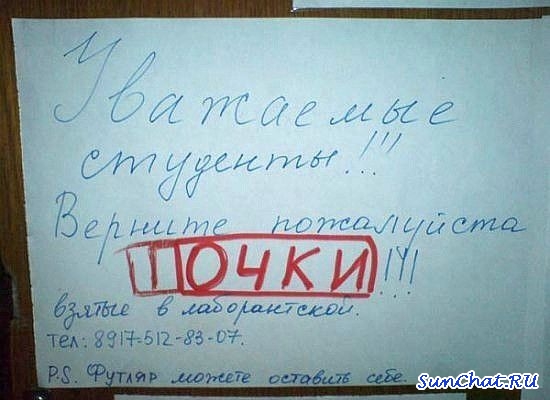 Уважаемые
студенты!!!
Верните пожалуйста
ОЧКИ!!!
взятые в лаборантской.
тел: 8917-512-83-07.
P.S. Футляр можете оставить себе.
SunChat.RU